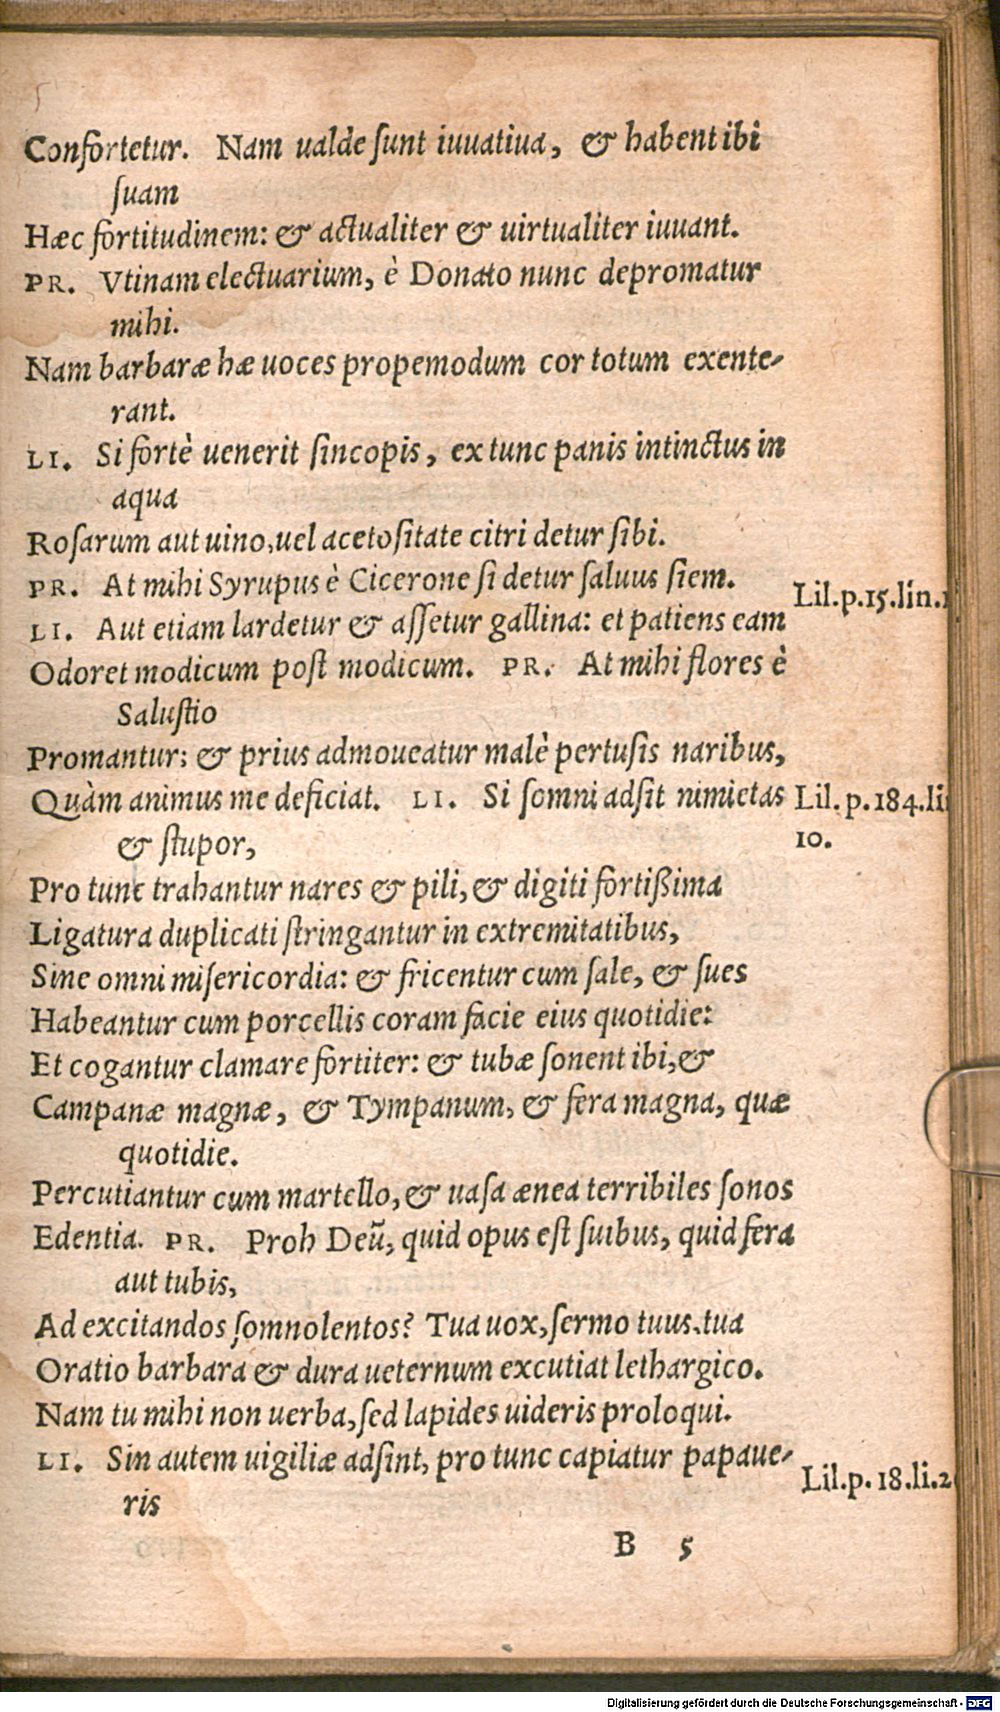 Confortetur. Nam ualde ſunt iuuatiua, & habent ibi
ſuam
Hæc fortitudinem: & actualiter & uirtualiter iuuant.
PR. Vtinam electuarium, è Donato nunc depromatur
mihi.
Nam barbaræ hæ uoces propemodum cor totum exente-
rant.
LI. Si fortè uenerit ſincopis, ex tunc panis intinctus in
aqua
Roſarum aut uino, uel acetoſitate citri detur ſibi.
PR. At mihi Syrupus è Cicerone ſi detur ſaluus ſiem. Lil.p.15.lin.1
LI. Aut etiam lardetur & aſſetur gallina: et patiens eam
Odoret modicum poſt modicum. PR. At mihi flores è
Saluſtio
Promantur: & prius admoueatur malè pertuſis naribus,
Quàm animus me deficiat. LI. Si ſomni adſit nimietas Lil. p.184.li
& ſtupor, 10.
Pro tunc trahantur nares & pili, & digiti fortißima
Ligatura duplicati ſtringantur in extremitatibus,
Sine omni miſericordia: & fricentur cum ſale, & ſues
Habeantur cum porcellis coram facie eius quotidie:
Et cogantur clamare fortiter: & tubæ ſonent ibi, &
Campanæ magnæ, & Tympanum, & fera magna, quæ
quotidie.
Percutiantur cum martello, & uaſa ænea terribiles ſonos
Edentia. PR. Proh Deũ, quid opus eſt ſuibus, quid fera
aut tubis,
Ad excitandos ſomnolentos? Tua uox, ſermo tuus, tua
Oratio barbara & dura ueternum excutiat lethargico.
Nam tu mihi non uerba, ſed lapides uideris proloqui.
LI. Sin autem uigiliæ adſint, pro tunc capiatur papaue- Lil.p.18.li.2
ris
B 5
Digitalisierung gefördert durch die Deutsche Forschungsgemeinschaft - DFG